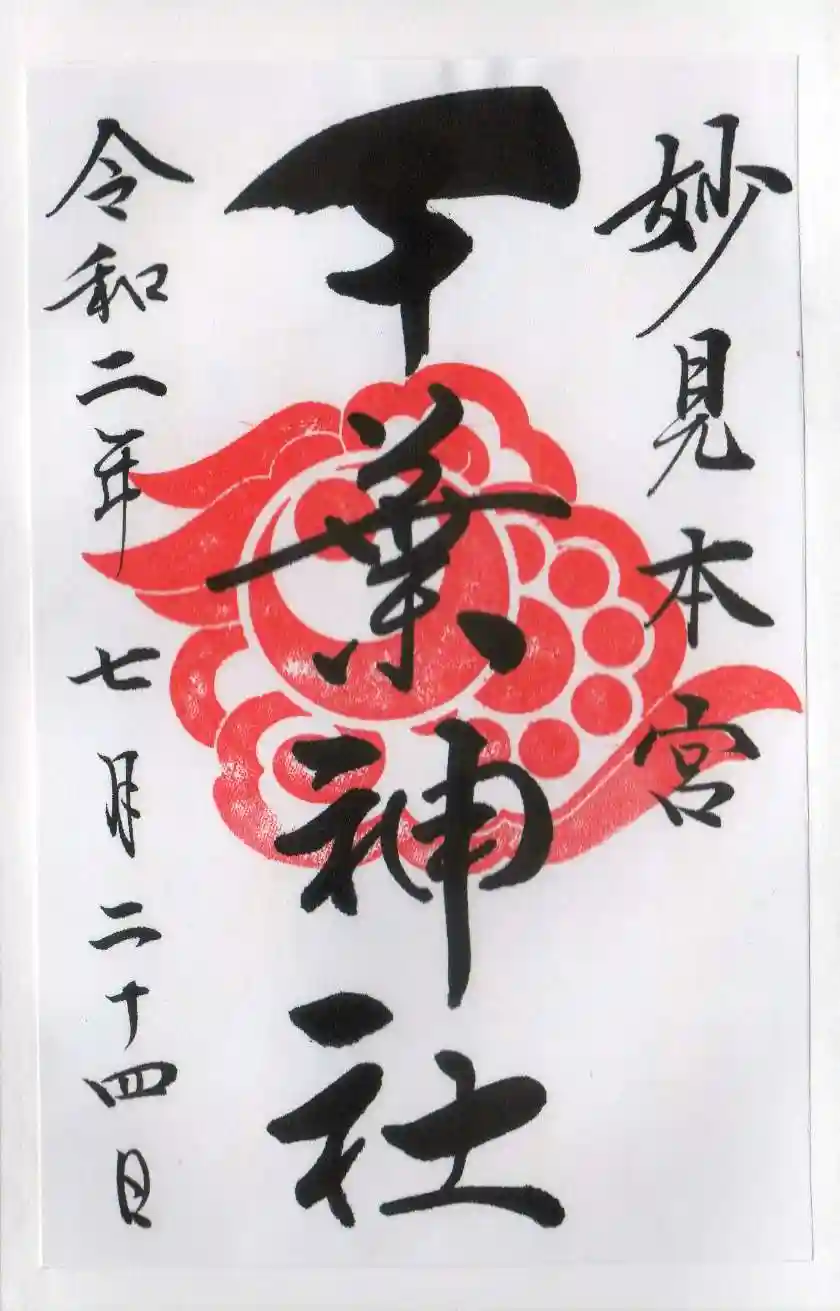 妙見本宮
千葉神社
令和二年七月二十四日